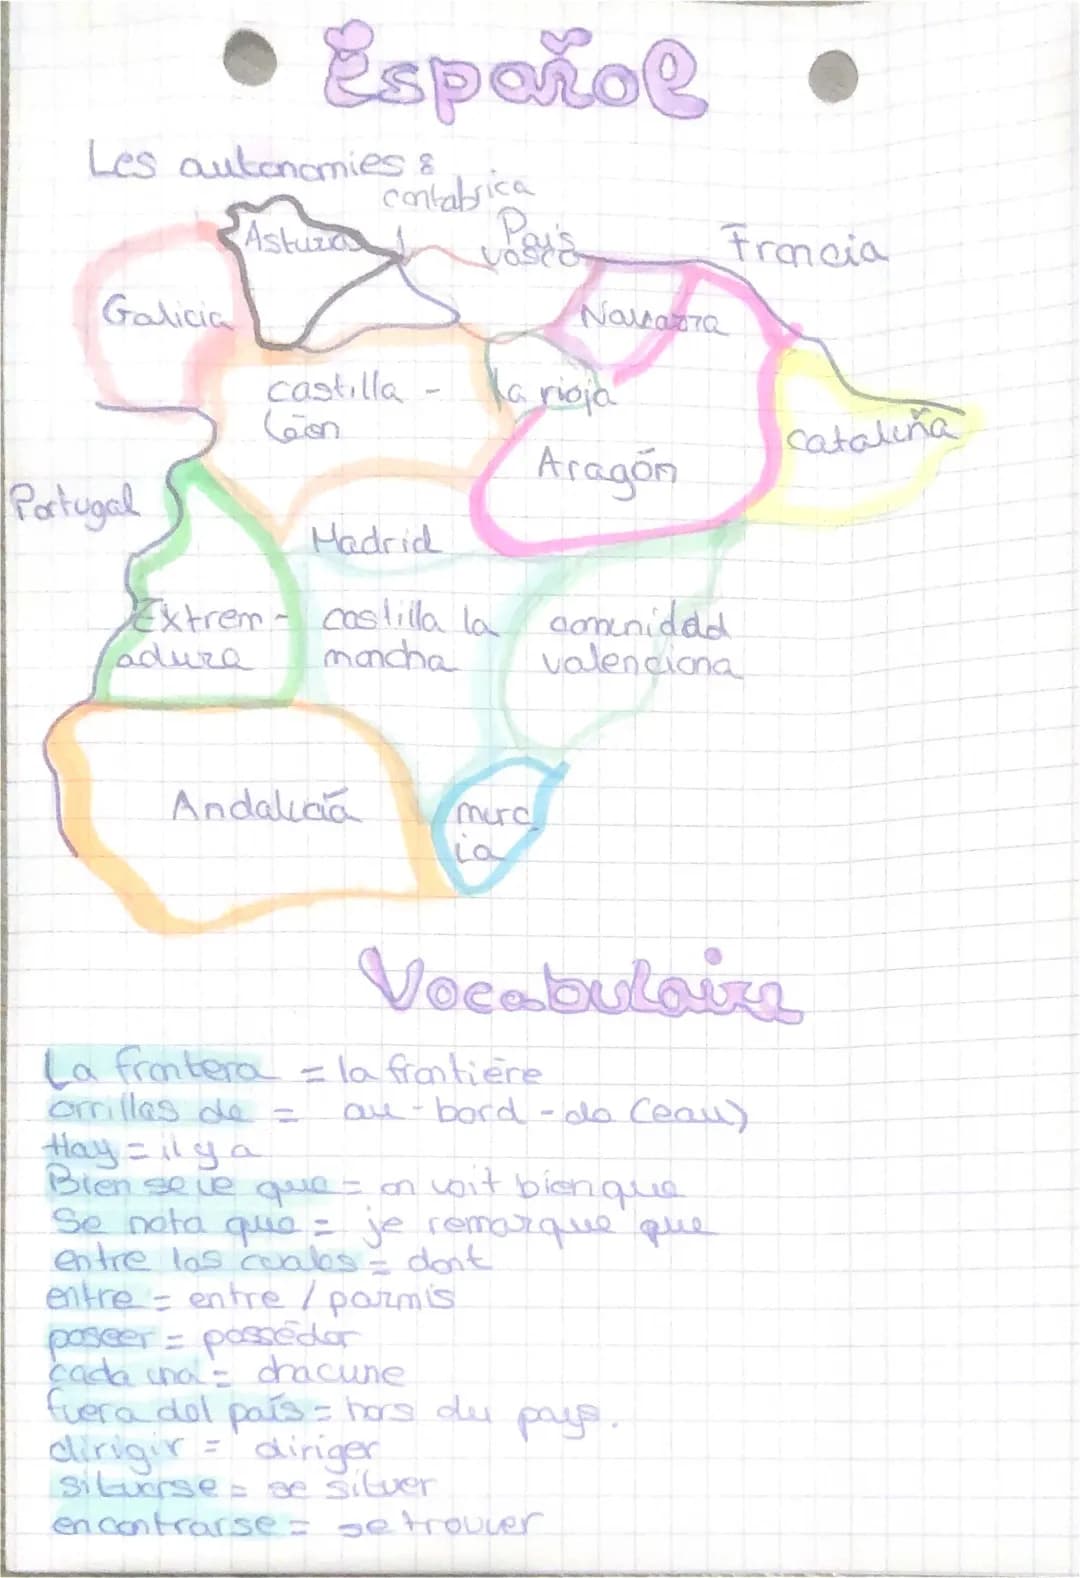 Español
Les autonomies :
contabrica
Asturas
País
vasco
Francia
Galicia
Navarra
castilla -
león
la rioja
cataluña
Aragón
Portugal
Madrid
Extrem-
adura
castilla la
mancha
comunidad
valenciana
Andalucía
murc
ia
Vocabulaire
La frontera = la frontière
orrillas de = au-bord-de (eau)
Hay = il y a
Bien se ve que = on voit bien que
Se nota que = je remarque que
entre las cuales = dont
entre = entre / parmis
poseer = posséder
cada una = chacune
fuera del país = hors du pays.
dirigir = diriger
situarse = se situer
encontrarse = se trouver